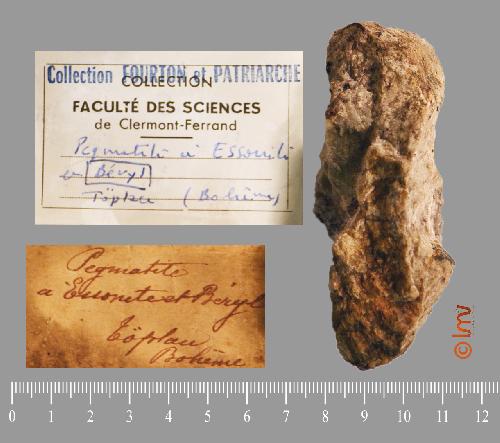 Collection FOURTON et PATRIARCHE
COLLECTION
FACULTÉ DES SCIENCES
de Clermont-Ferrand
Pegmatite à Essonite
et Béryl
Töplau (Bohême)
Pegmatite
à Essonite et Béryl
Töplau
Bohême
© lmv
0 1 2 3 4 5 6 7 8 9 10 11 12